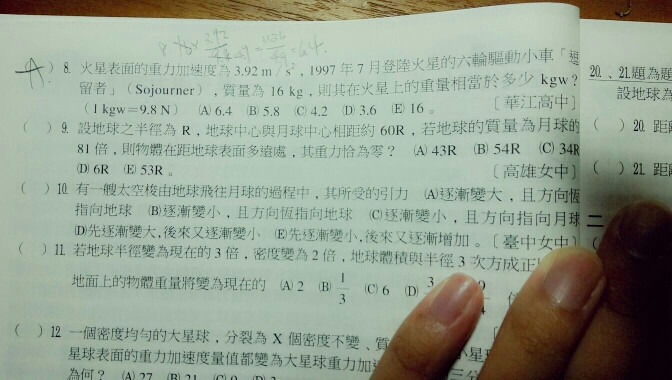 A ) 8. 火星表面的重力加速度為 3.92 m / s²，1997 年 7 月登陸火星的六輪驅動小車「逗
留者」（Sojourner），質量為 16 kg，則其在火星上的重量相當於多少 kgw？
（1 kgw＝9.8 N） (A) 6.4 (B) 5.8 (C) 4.2 (D) 3.6 (E) 16 。 〔華江高中〕
( ) 9. 設地球之半徑為 R，地球中心與月球中心相距約 60R，若地球的質量為月球的
81 倍，則物體在距地球表面多遠處，其重力恰為零？ (A) 43R (B) 54R (C) 34R
(D) 6R (E) 53R 。 〔高雄女中〕
( ) 10. 有一艘太空梭由地球飛往月球的過程中，其所受的引力 (A)逐漸變大，且方向恆
指向地球 (B)逐漸變小，且方向恆指向地球 (C)逐漸變小，且方向指向月球
(D)先逐漸變大，後來又逐漸變小 (E)先逐漸變小，後來又逐漸增加 。〔臺中女中〕
( ) 11. 若地球半徑變為現在的 3 倍，密度變為 2 倍，地球體積與半徑 3 次方成正
地面上的物體重量將變為現在的 (A) 2 (B) 1/3 (C) 6 (D)
( ) 12 一個密度均勻的大星球，分裂為 X 個密度不變、質
星球表面的重力加速度量值都變為大星球重力加
為何？ (A) 27 (B) 21 (C) 9 (D) 3
20. 、21.題為題
設地球為
( ) 20. 距
( ) 21. 距
二